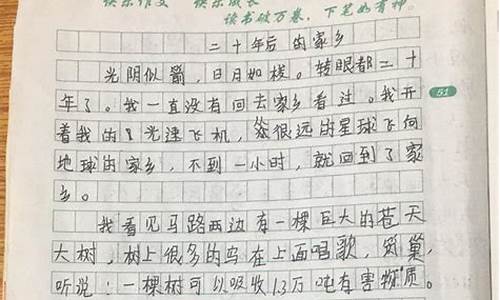 快乐作文 快乐成长
读书破万卷,下笔如有神。
二十年后的家乡
光阴似箭,日月如梭。转眼都二十
年了。我一直没有回去家乡看过。我开
着我的光速飞机,从很远的星球飞向
地球的家乡,不到一小时,就回到了家
乡。
51
我看见马路两边有一棵巨大的苍天
大树,树上很多的鸟在上面唱歌,筑巢,
听说:一棵树可以吸收13万吨有害物质。